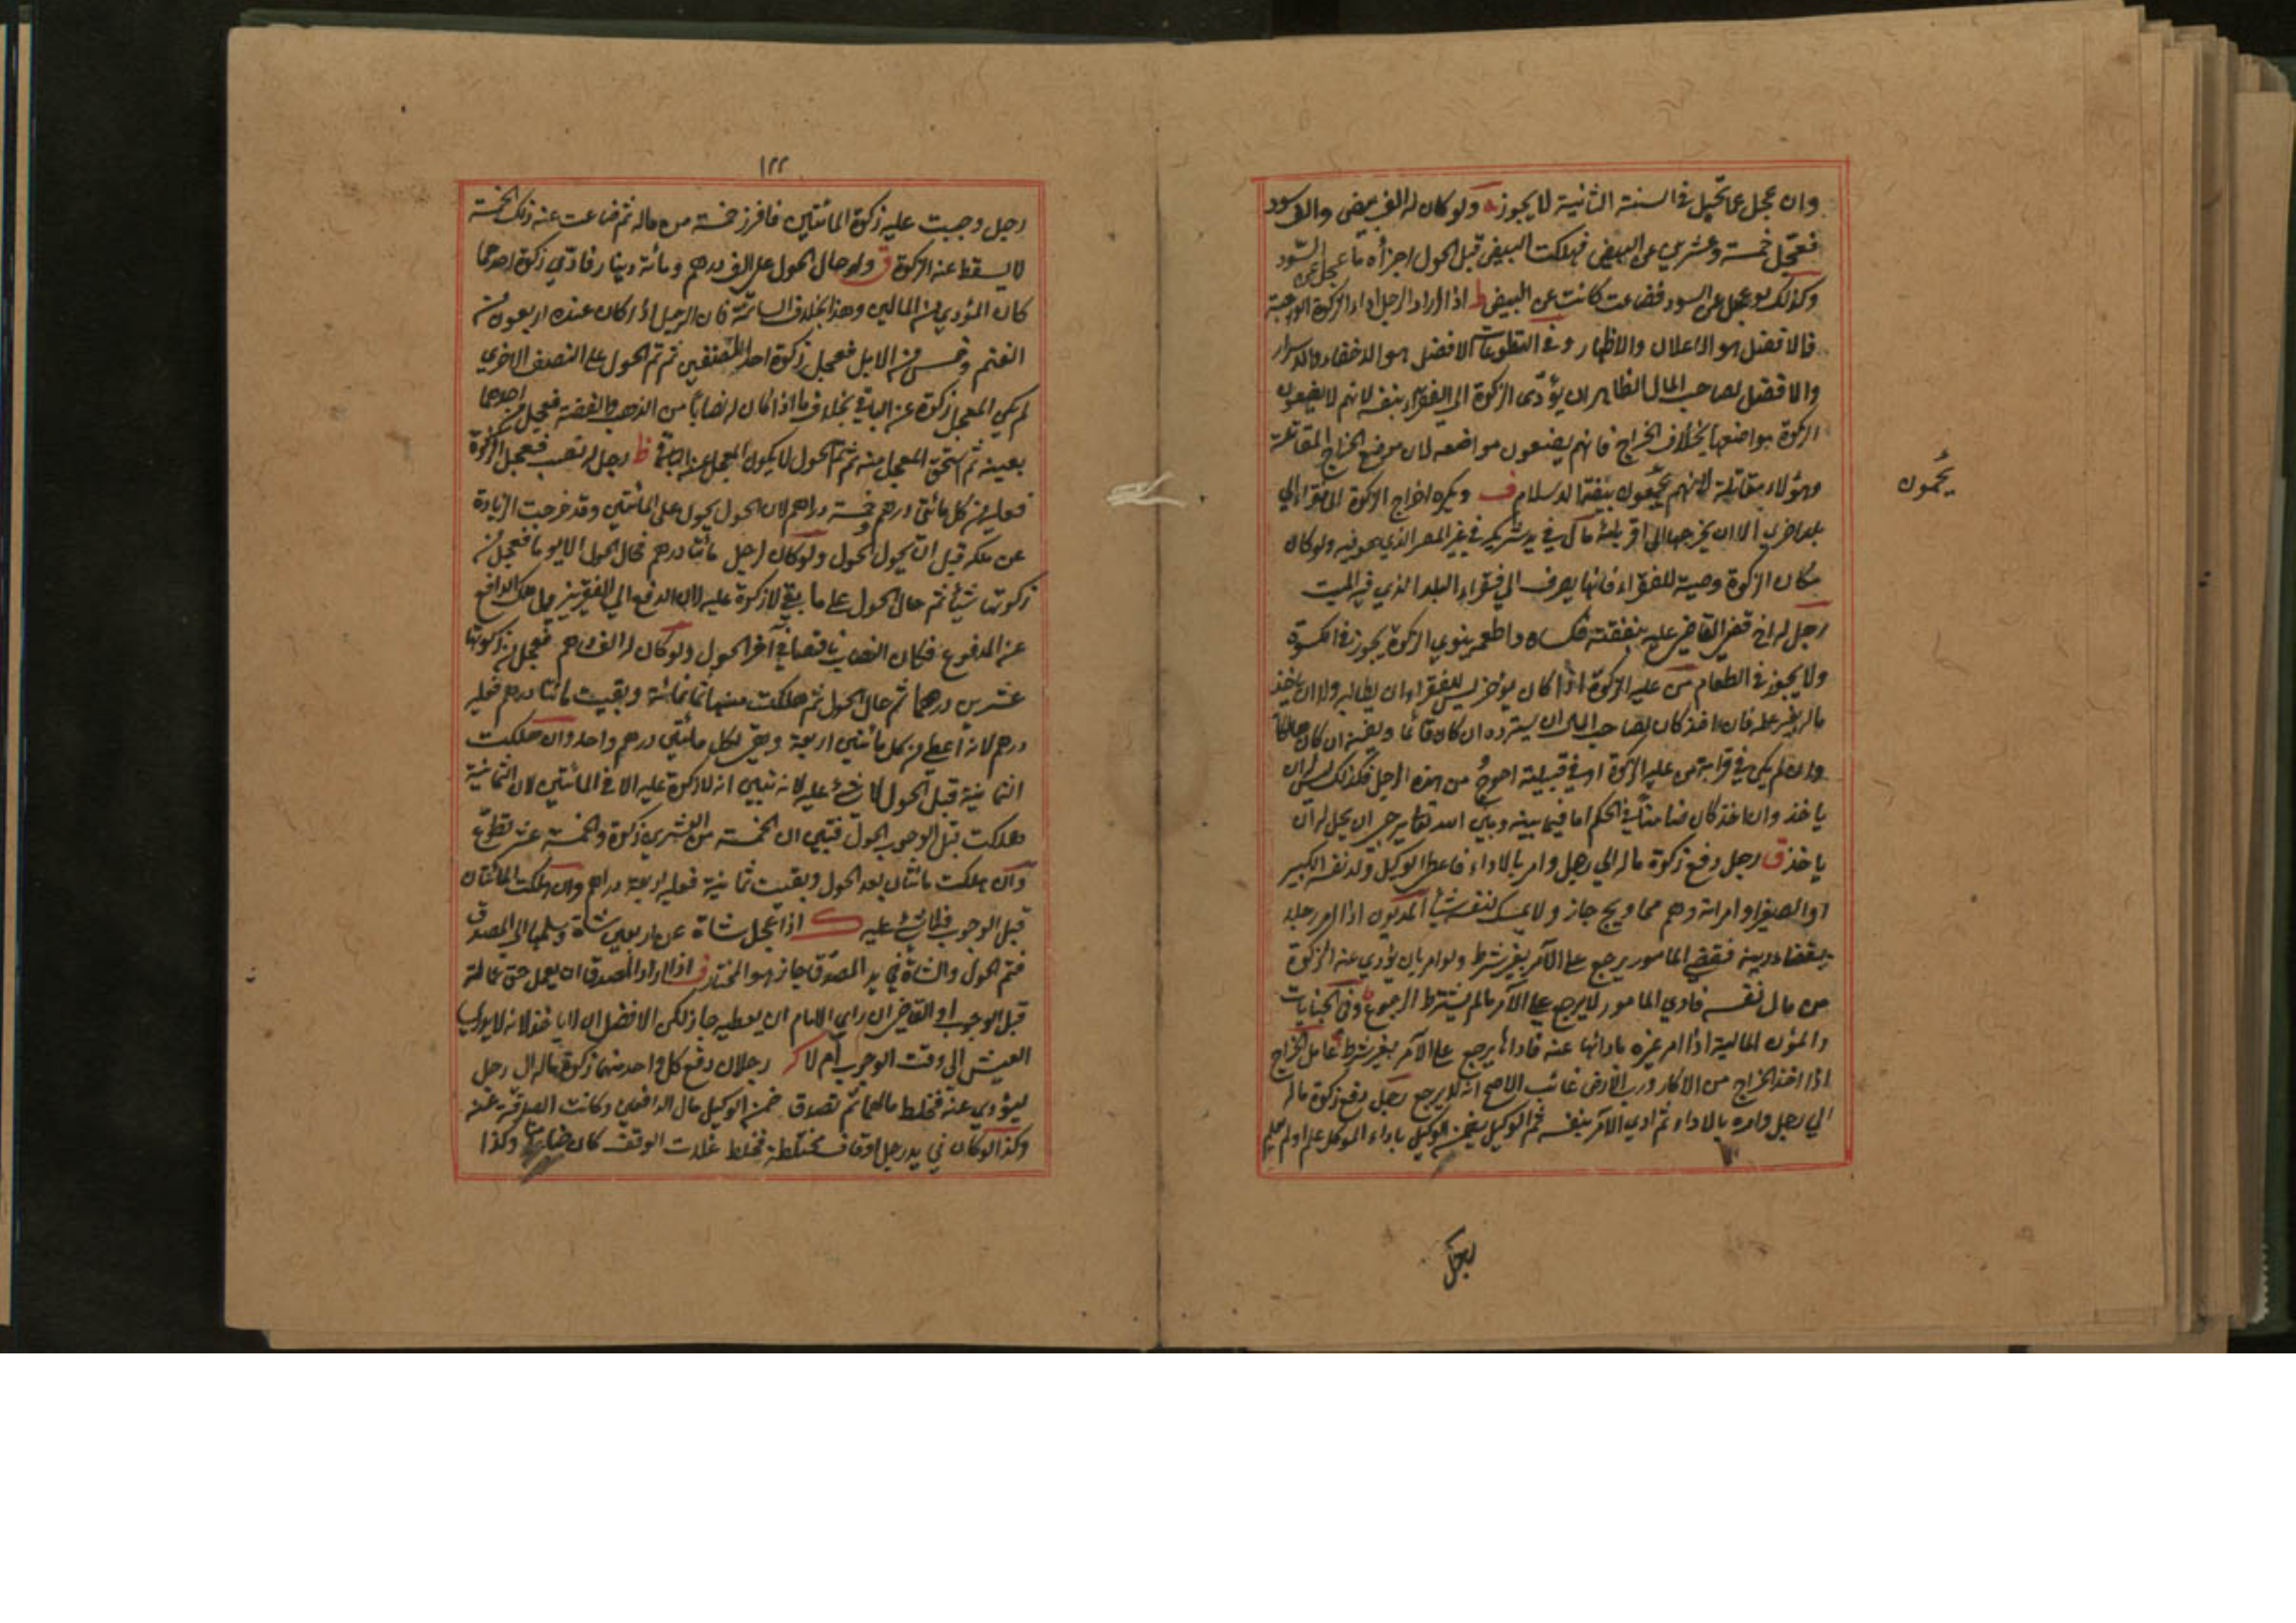 وان عجل عما تحمل في السنة الثانية لا يجوز ولو كان له الف بيض والف سود
فعجل خمسة وعشرين عن البيض فهلكت البيض قبل الحول اجزأه ما عجل عن السود
وكذلك لو عجل عن السود فضاعت كانت عن البيض ط اذا اراد الرجل اداء الزكوة الواجبة
فالافضل هو الاعلان والاظهار وفي التطوعات الافضل هو الاخفاء والاسرار
والافضل لصاحب المال الظاهر ان يؤدي الزكوة الى الفقراء بنفسه لانهم لا يضعون
الزكوة مواضعها بخلاف الخراج فانهم يضعون مواضعه لان موضع الخراج المقاتلة
وهؤلاء مقاتلة لانهم يحمون بيضة الاسلام ف ويكره اخراج الزكوة الى
بلد اخرى الا ان يخرجها الى اقربائه في غير المصر الذي هو فيه ولو كان
مكان الزكوة وصية للفقراء فانها يصرف الى فقراء البلد الذي فيه الميت
رجل له اخ قضى القاضي عليه بنفقته فكساه واطعمه ينوي الزكوة يجوز في الكسوة
ولا يجوز في الطعام من عليه الزكوة اذا كان يؤخر ليس للفقراء ان يطالبه ولا ان ياخذ
ماله بغير علمه فان اخذ كان لصاحب المال ان يسترده ان كان قائما ويضمنه ان كان هالكا
وان لم يكن في قرابة من عليه الزكوة او في قبيلته احوج من هذا الرجل فكذلك ليس له ان
ياخذ وان اخذ كان ضامنا في الحكم اما فيما بينه وبين الله تعالى يرجى ان يحل له ان
ياخذ ق رجل دفع زكوة ماله الى رجل وامر بالاداء فاعطى الوكيل ولد نفسه الكبير
او الصغير او امراته وهم محاويج جاز ولا يمسك لنفسه شيأ المديون اذا امر رجلا
بقضاء دينه فقضى المامور يرجع على الآمر بغير شرط ولو امر بان يؤدي عنه الزكوة
من مال نفسه فادى المامور لا يرجع على الآمر مالم يشترط الرجوع وفي الجنايات
والمؤن المالية اذا امر غيره بادائها عنه فاداها يرجع على الآمر بغير شرط عامل الخراج
اذا اخذ الخراج من الاكار ورب الارض غائب الاصح انه لا يرجع رجل دفع زكوة ماله
الى رجل وامره بالاداء ثم ادى الآمر بنفسه ثم الوكيل يضمن الوكيل باداء الموكل علم او لم يعلم
يحمون
رجل
١٢٢
رجل وجبت عليه زكوة المائتين فافرز خمسة من ماله ثم ضاعت عنه ذلك الخمسة
لا يسقط عنه الزكوة ق ولو حال الحول على الف درهم ومائة دينار فادى زكوة احدهما
كان المؤدي من المالين وهذا بخلاف السائمة فان الرجل اذا كان عنده اربعون من
الغنم وخمس من الابل فعجل زكوة احد الصنفين ثم تم الحول على النصف الاخرى
لم يكن المعجل زكوة عن الباقي بخلاف ما اذا كان له نصابا من الذهب والفضة فعجل من احدهما
بعينه ثم استحق المعجل منه ثم تم الحول لا يكون المعجل عن الباقي ظ رجل له نصب فعجل الزكوة
فعليه من كل مائتي درهم خمسة دراهم لان الحول يحول على المائتين وقد خرجت الزيادة
عن ملكه قبل ان يحول الحول ولو كان لرجل مائتا درهم فحال الحول الا يوما فعجل من
زكوتها شيأ ثم حال الحول على ما بقي لا زكوة عليه لان الدفع الى الفقير يزيل ملك الدافع
عن المدفوع فكان النصاب ناقصا في آخر الحول ولو كان له الف درهم فعجل من زكوتها
عشرين درهما ثم حال الحول ثم هلكت منها ثمانمائة وبقيت مائتا درهم فعليه
درهم لانه اعطى من كل مائتين اربعة وبقي لكل مائتي درهم واحد وان هلكت
الثمانية قبل الحول لا شئ عليه لانه تبين انه لا زكوة عليه الا في المائتين لان الثمانية
هلكت قبل الوجوب الحول فتبين ان الخمسة من العشرين زكوة والخمسة عشر تطوع
وان هلكت مائتان بعد الحول وبقيت ثمانية فعليه اربعة دراهم وان هلكت المائتان
قبل الوجوب فلا شئ عليه ك اذا عجل شاة عن اربعين شاة وسلمها الى المصدق
فتم الحول والشاة في يد المصدق جاز هو المختار ف اذا اراد المصدق ان يعجل حق عمالته
قبل الوجوب او القاضي ان راى الامام ان يعطيه جاز لكن الافضل ان لا ياخذ لانه لا يدري
العيش الى وقت الوجوب ام لا ك رجلان دفع كل واحد منهما زكوة ماله الى رجل
ليؤدي عنه فخلط مالهما ثم تصدق ضمن الوكيل مال الدافعين وكانت الصدقة عنه
وكذا لو كان في يد رجل اوقاف مختلطة فخلط غلات الوقف كان ضامنا وكذا